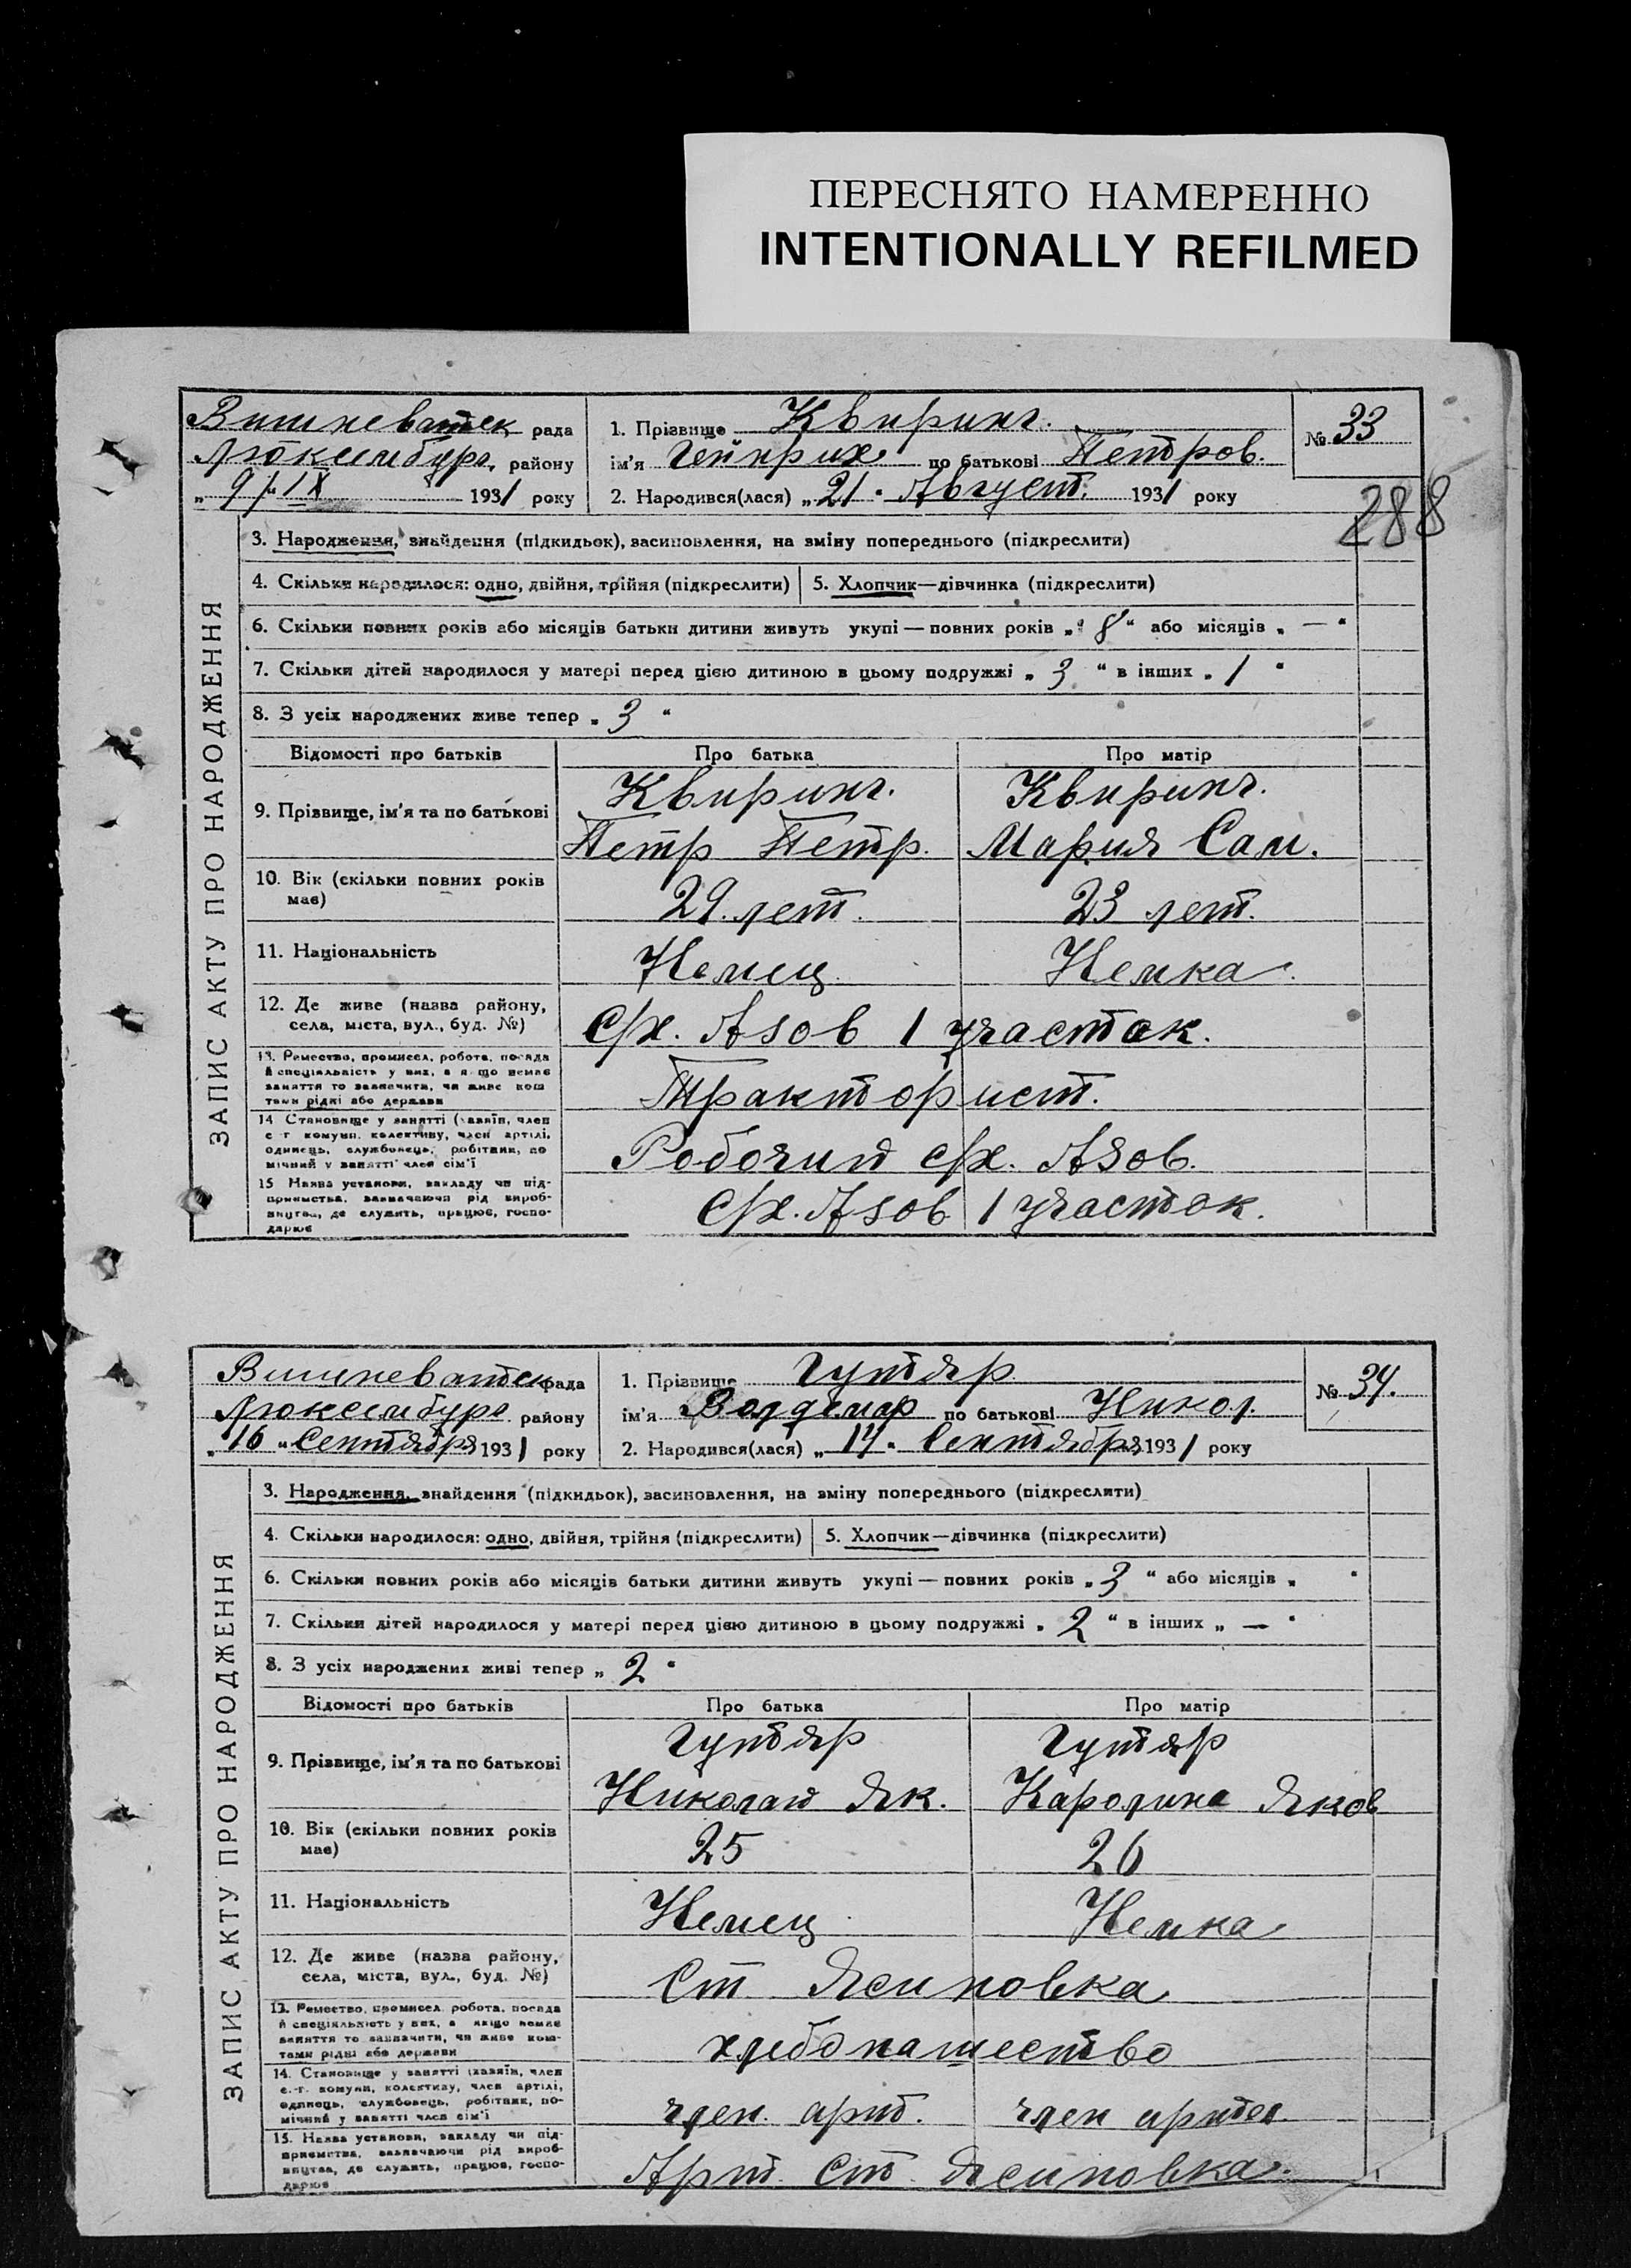 ПЕРЕСНЯТО НАМЕРЕННО
INTENTIONALLY REFILMED
Вишневатск рада
Люксембург. району
„ 9 / " IX 1931 року
1. Прізвище Квиринг.
ім'я Гейнрих по батькові Петров.
2. Народився(лася) „ 21 " Август. 1931 року
№ 33
288
ЗАПИС АКТУ ПРО НАРОДЖЕННЯ
3. Народження, знайдення (підкидьок), засиновлення, на зміну попереднього (підкреслити)
4. Скільки народилося: одно, двійня, трійня (підкреслити)
5. Хлопчик—дівчинка (підкреслити)
6. Скільки повних років або місяців батьки дитини живуть укупі — повних років „ 8 " або місяців „ — "
7. Скільки дітей народилося у матері перед цією дитиною в цьому подружжі „ 3 " в інших „ 1 "
8. З усіх народжених живе тепер „ 3 "
Відомості про батьків Про батька Про матір
9. Прізвище, ім'я та по батькові
Квиринг. Квиринг.
Петр Петр. Мария Сам.
10. Вік (скільки повних років має)
29. лет. 23 лет.
11. Національність
Немец Немка
12. Де живе (назва району,
села, міста, вул., буд. №)
С/х. Азов 1 участок.
13. Ремество, промисел, робота, посада
й спеціяльність у них, а якщо немає
заняття то зазначити, чи живе кош
тами рідні або держави
Тракторист.
14 Становище у занятті (хазяїн, член
с.-г. комуни, колективу, член артілі,
одинець, службовець, робітник, по
мічний у занятті член сім'ї
Робочий с/х. Азов.
15 Назва установи, закладу чи під-
приємства, зазначаючи рід вироб-
ництва, де служить, працює, госпо-
дарює
С/х. Азов 1 участок.
Вишневатск рада
Люксембург району
„ 16 " Сентября 1931 року
1. Прізвище Гутяр
ім'я Волдемар по батькові Никол.
2. Народився(лася) „ 14 " Сентября 1931 року
№ 34.
ЗАПИС АКТУ ПРО НАРОДЖЕННЯ
3. Народження, знайдення (підкидьок), засиновлення, на зміну попереднього (підкреслити)
4. Скільки народилося: одно, двійня, трійня (підкреслити)
5. Хлопчик—дівчинка (підкреслити)
6. Скільки повних років або місяців батьки дитини живуть укупі — повних років „ 3 " або місяців „ "
7. Скільки дітей народилося у матері перед цією дитиною в цьому подружжі „ 2 " в інших „ — "
8. З усіх народжених живі тепер „ 2 "
Відомості про батьків Про батька Про матір
9. Прізвище, ім'я та по батькові
Гутяр Гутяр
Николай Як. Каролина Яков
10. Вік (скільки повних років має)
25 26
11. Національність
Немец Немка
12. Де живе (назва району,
села, міста, вул., буд. №)
Ст. Ясиновка
13. Ремество, промисел, робота, посада
й спеціяльність у них, а якщо немає
заняття то зазначити, чи живе кош-
тами рідні або держави
хлебопашество
14. Становище у занятті (хазяїн, член
с.-г. комуни, колективу, член артілі,
одинець, службовець, робітник, по-
мічний у занятті член сім'ї
член. арт. член артел
15. Назва установи, закладу чи під-
приємства, зазначаючи рід вироб-
ництва, де служить, працює, госпо-
дарює
Арт. Ст. Ясиновка.